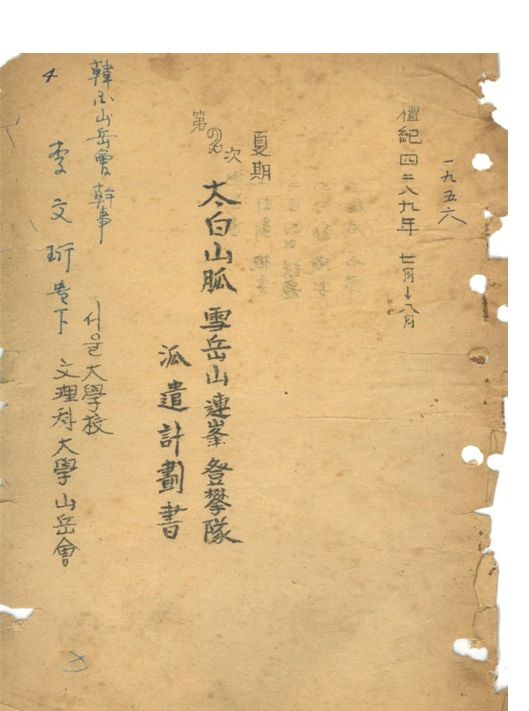 一九五六
檀紀 四二八九年 七月↓八月
夏期
第2次
太白山脈 雪岳山 連峯 登攀隊
派遣計劃書
서울大學校
文理科大學 山岳會
韓国山岳會 幹事
李文珩 貴下